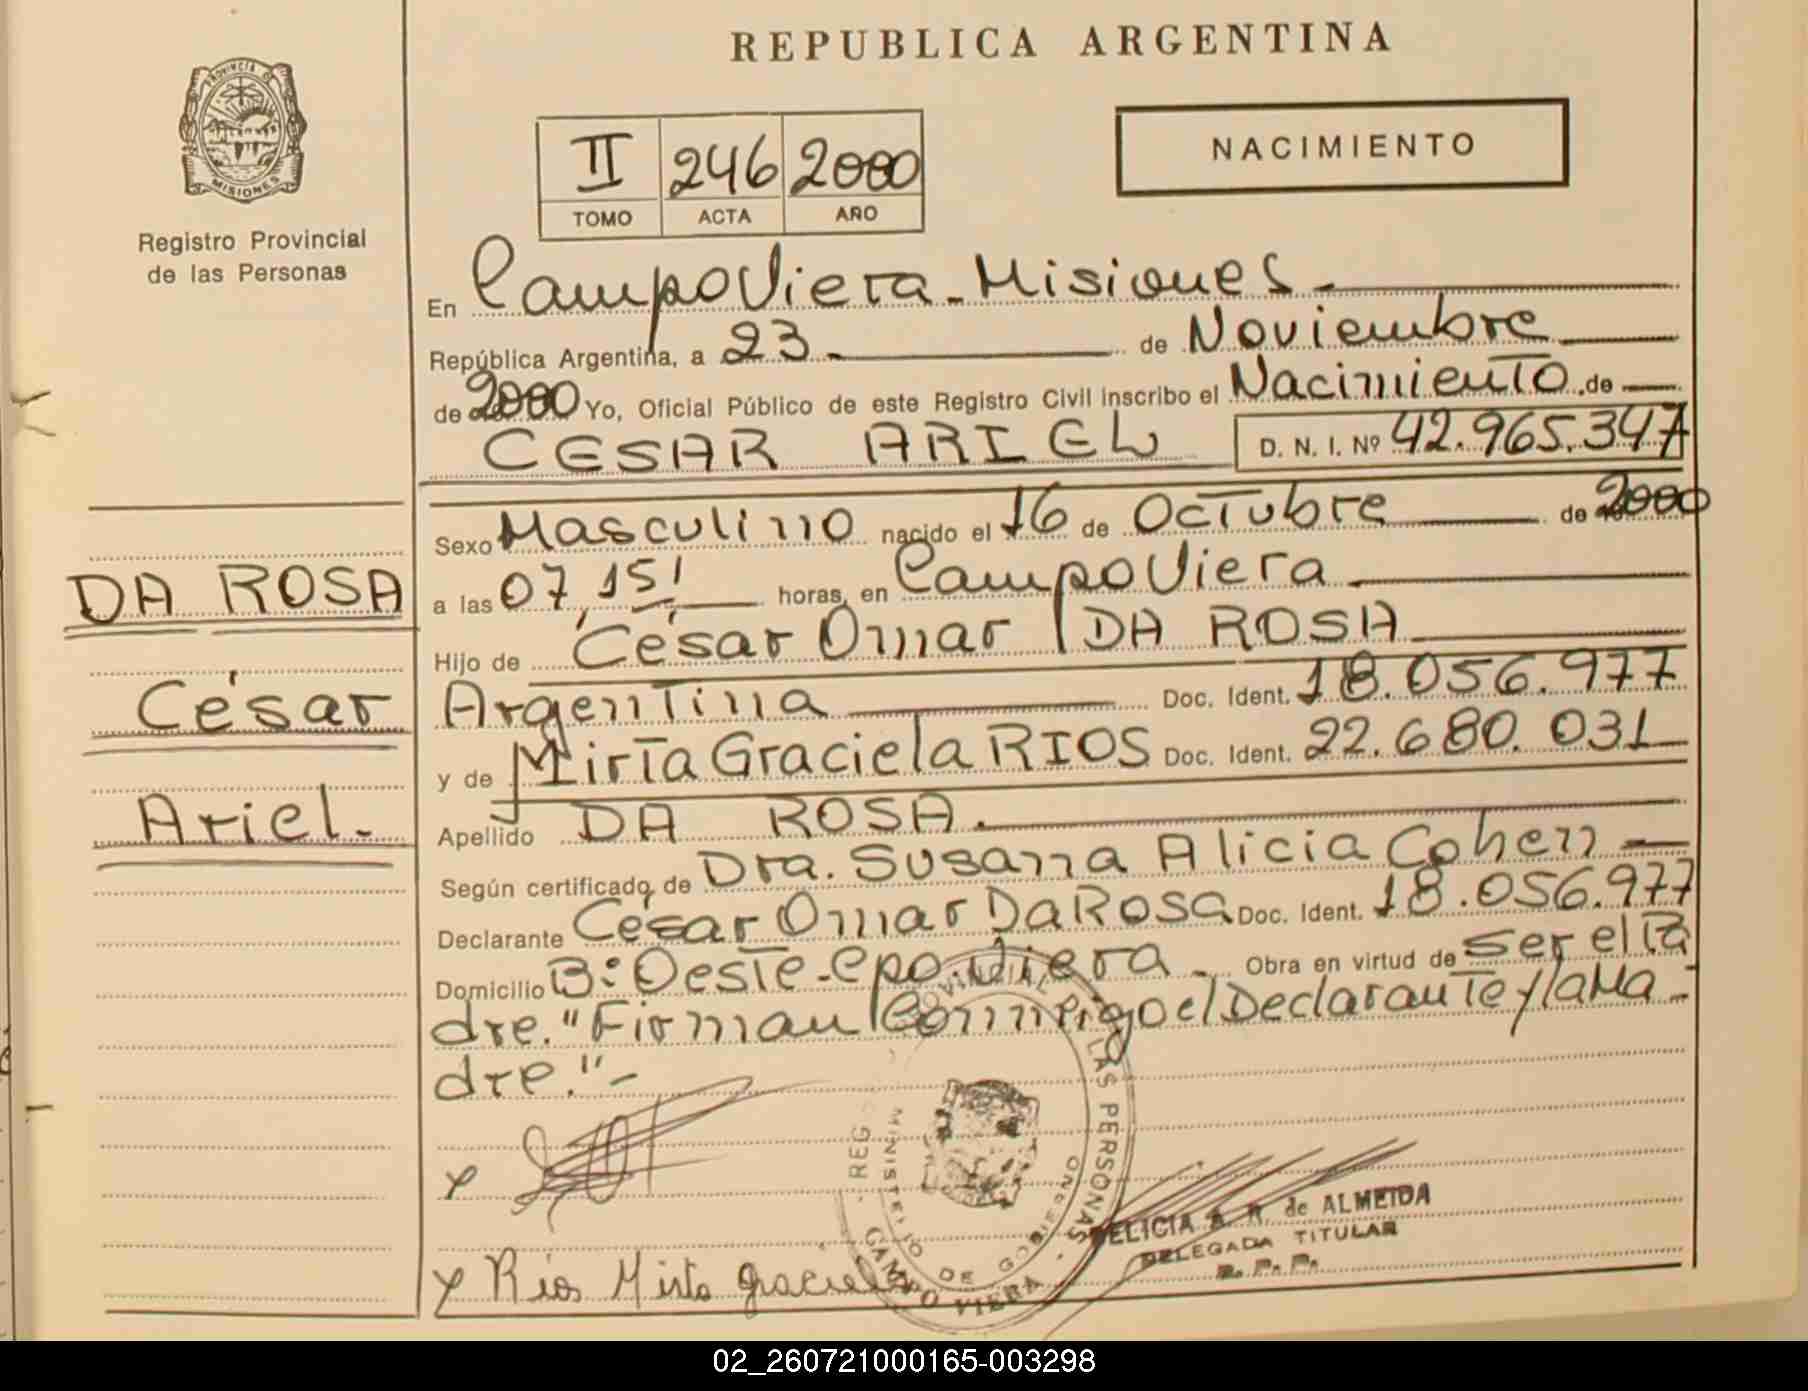 REPUBLICA ARGENTINA
PROVINCIA DE
MISIONES
Registro Provincial
de las Personas
II 246 2000
TOMO ACTA AÑO
NACIMIENTO
En Campo Viera - Misiones -
República Argentina, a 23. de Noviembre
de 2000 Yo, Oficial Público de este Registro Civil inscribo el Nacimiento de
CESAR ARIEL D. N. I. Nº 42.965.347
Sexo Masculino nacido el 16 de Octubre de 2000
a las 07,15' horas, en Campo Viera
Hijo de César Omar DA ROSA
Argentina Doc. Ident. 18.056.977
y de Mirta Graciela RIOS Doc. Ident. 22.680.031
Apellido DA ROSA.
Según certificado de Dra. Susana Alicia Cohen
Declarante César Omar Da Rosa Doc. Ident. 18.056.977
Domicilio B: Oeste - Cpo. Viera - Obra en virtud de ser el Pa
dre. "Firman Conmigo el Declarante y la Ma-
dre."-
DA ROSA
César
Ariel.-
REG PROVINCIAL D LAS PERSONAS
MINISTERIO DE GOBIERNO
CAMPO VIERA
DELICIA B. R. de ALMEIDA
DELEGADA TITULAR
R. P. P.
Rios Mirta graciela
02_260721000165-003298